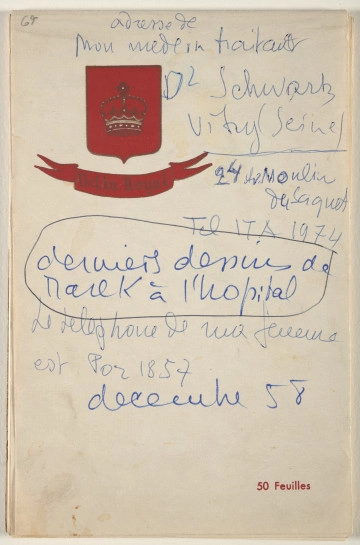 68
adresse de
mon medecin traitant
Dr Schwartz
Vitry (Seine)
24 Av Moulin
de Saquet
Tel ITA 1974
derniers dessins de
Marek à l'hopital
Le telephone de ma femme
est Por 1857
decembre 58
50 Feuilles